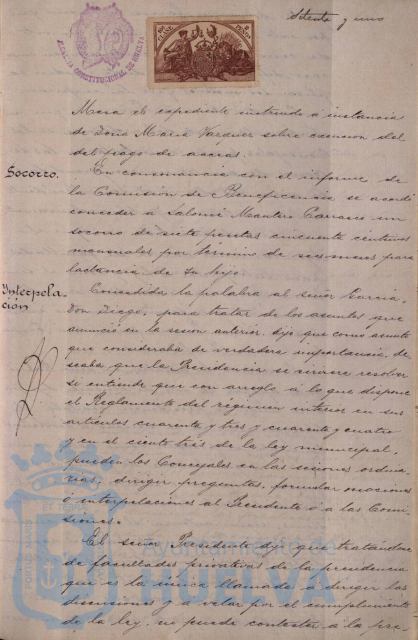 Setenta y uno
ALCALDIA CONSTITUCIONAL DE HUELVA
Mesa el expediente instruido a instancia
de Doña Maria Vazquez sobre exencion del
del pago de aceras.
Socorro.
En consonancia con el informe de
la Comision de Beneficencia se acordó
conceder á Salomé Mantero Carrasco un
socorro de siete pesetas cincuenta centimos
mensuales por término de seis meses para
lactancia de su hijo.
Interpelación
Concedida la palabra al señor Garcia,
Don Diego, para tratar de los asuntos que
anunció en la sesion anterior, dijo que como asunto
que consideraba de verdadera importancia, de
seaba que la Presidencia se sirviera resolver
si entiende que con arreglo á lo que dispone
el Reglamento del régimen interior en sus
articulos cuarenta y tres y cuarenta y cuatro
y en el ciento tres de la ley municipal,
pueden los Concejales en las sesiones ordina
rias, dirigir preguntas, formular mociones
ó interpelaciones al Presidente ó a las Comi
siones.
El señor Presidente dijo que tratándose
de facultades privativas de la presidencia
que es la única llamada á dirigir las
discusiones y a velar por el cumplimiento
de la ley, no puede contestar á la pre
Ayuntamiento de
HUELVA